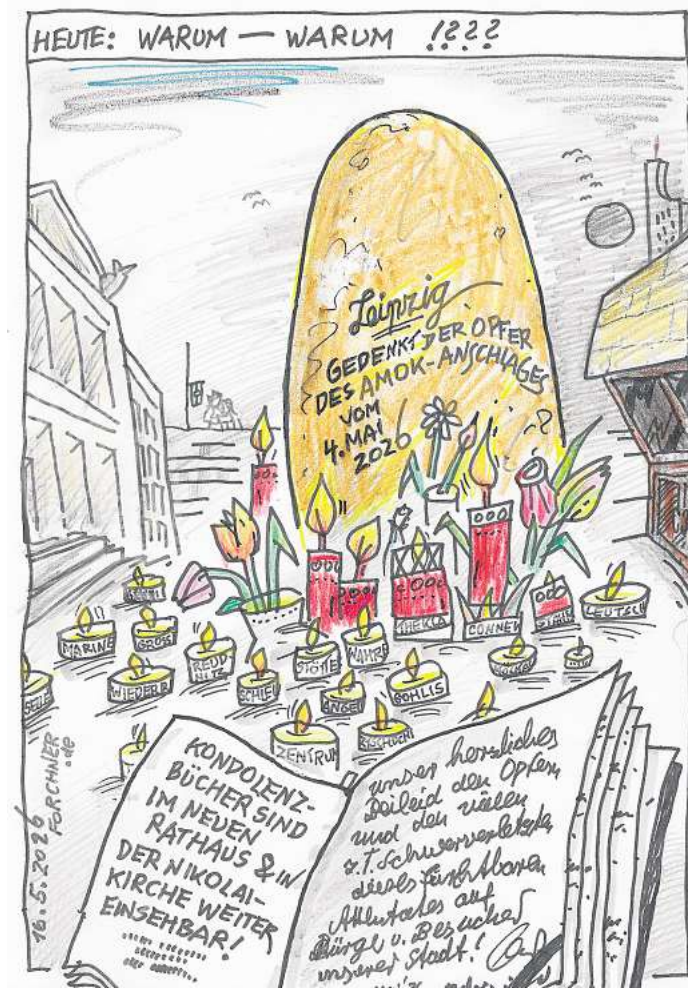 HEUTE: WARUM — WARUM !???
Leipzig
GEDENKT DER OPFER
DES AMOK-ANSCHLAGES
VOM
4. MAI
2026
MARINE
GROSS
REDD
NITZ
STÖTTE
WAHRE
THEKLA
CONNEW
LEUTSCH
WIEDER
SCHLEU
ANGER
GOHLIS
ZENTRUM
KONDOLENZ-
BÜCHER SIND
IM NEUEN
RATHAUS & IN
DER NIKOLAI-
KIRCHE WEITER
EINSEHBAR!
unser herzliches
Beileid den Opfern
und den vielen
z.T. Schwerverletzten
dieses furchtbaren
Attentates auf
Bürger u. Besucher
unserer Stadt!
16.5.2026
FORCHNER
.de